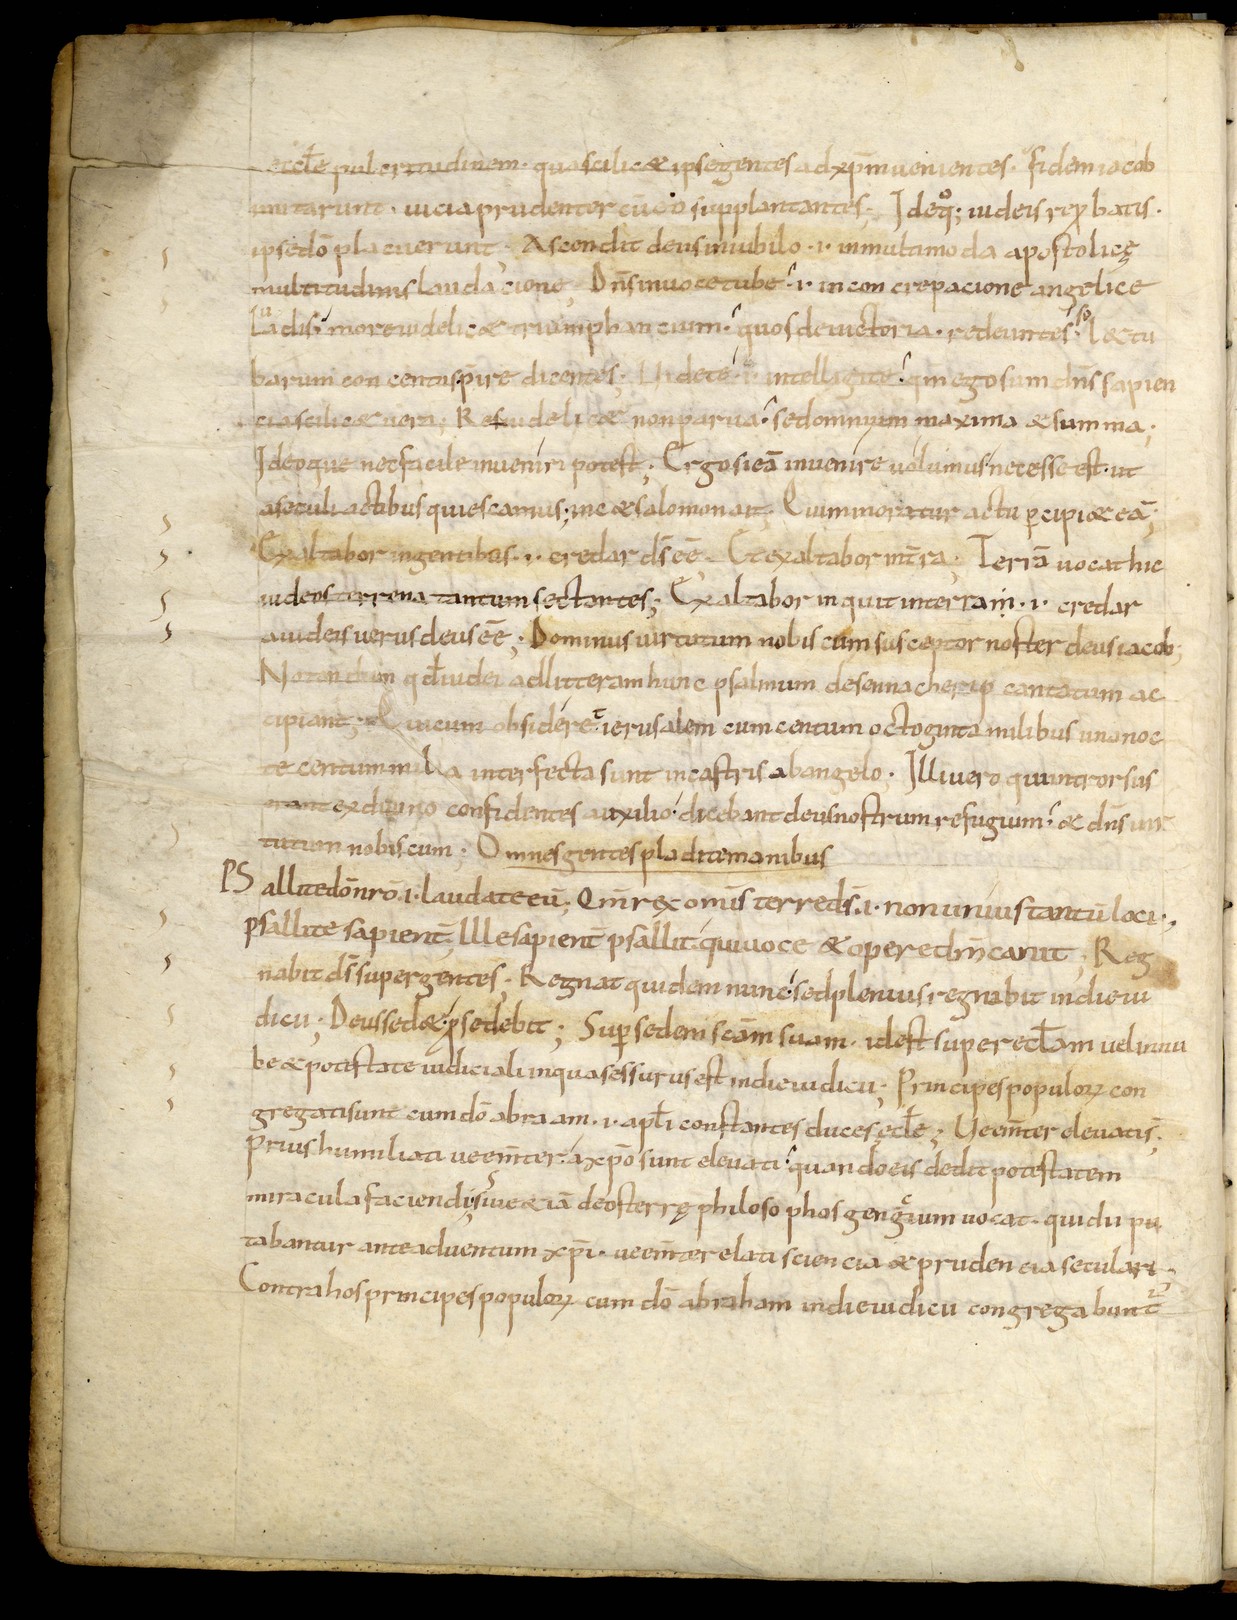 eccłe pulcrtudinem · qua scilic& ipse gentes ad xp̄m uenientes · fidem iacob
imitarunt · uicia prudenter cū eo supplantantes; Ideoq; iudeis reprobatis ·
ipse dō placuerunt; Ascendit deus in iubilo ·i· in multimoda apostolicę
multitudinis laudacione; Dn̄s in uoce tube ·i· in concrepacione angelice
laudis; more uidelic& triumphancium · quos de uictoria · redeuntes sol& tu
barum concentus p̄ire dicentes; Uidete ·i· intelligite · qm̄ ego sum dn̄s sapien
cia scilic& uera; Res uidelic& non parua · sed omnium maxima & summa;
Ideoque nec facile inueniri potest; Ergo si eā inuenire uolumus necesse est · ut
a seculi actibus quiescamus; inc & salomon ait; Qui minoratur actu percipi& eā;
Exaltabor in gentibus ·i· credar ds̄ eē; Et exaltabor in t̄ra; Terrā uocat hic
iudeos terrena tantum sectantes; Exaltabor inquit in terram ·i· credar
a iudeis uerus deus eē; Dominus uirtutum nobiscum susceptor noster deus iacob;
Notandum qđ iudei ad litteram hunc psalmum de sennacherip cantatum ac
cipiant; Qui cum obsideret ierusalem cum centum octoginta milibus una noc
te centum milia interfecta sunt in castris ab angelo · Illi uero qui introrsus
erant ex diuino confidentes auxilio dicebant deus nostrum refugium · & dn̄s uir
tutum nobiscum · Omnes gentes plaudite manibus
PSallite dō nr̄o ·i· laudate eū; Qm̄ rex om̄is terre ds̄ ·i· non unius tantū loci ·;
psallite sapient̄; Ille sapient̄ psallit qui uoce & opere dm̄ canit; Reg
nabit ds̄ super gentes; Regnat quidem nunc sed plenius regnabit in die iu
dicii; Deus sed& ·p̱ sedebit; Super sedem scām suam · id est super eccłam uel in nu
be & potestate iudiciali in qua sessurus est in die iudicii; Principes populoꝝ con
gregati sunt cum dō abraam ·i· apłi constantes duces ęccłe; Ueem̄ter eleuatis̄;
Prius humiliati ueem̄ter · a xp̄o sunt eleuati quando eis dedit potestatem
miracula faciendi; siue &iā deos terrę philosophos gentium uocat · qui dii pu
tabantur ante aduentum xp̄i · ueem̄ter elati sciencia & prudencia seculari;
Contra hos principes populoꝝ cum dō abraham in die iudicii congregabunt̄